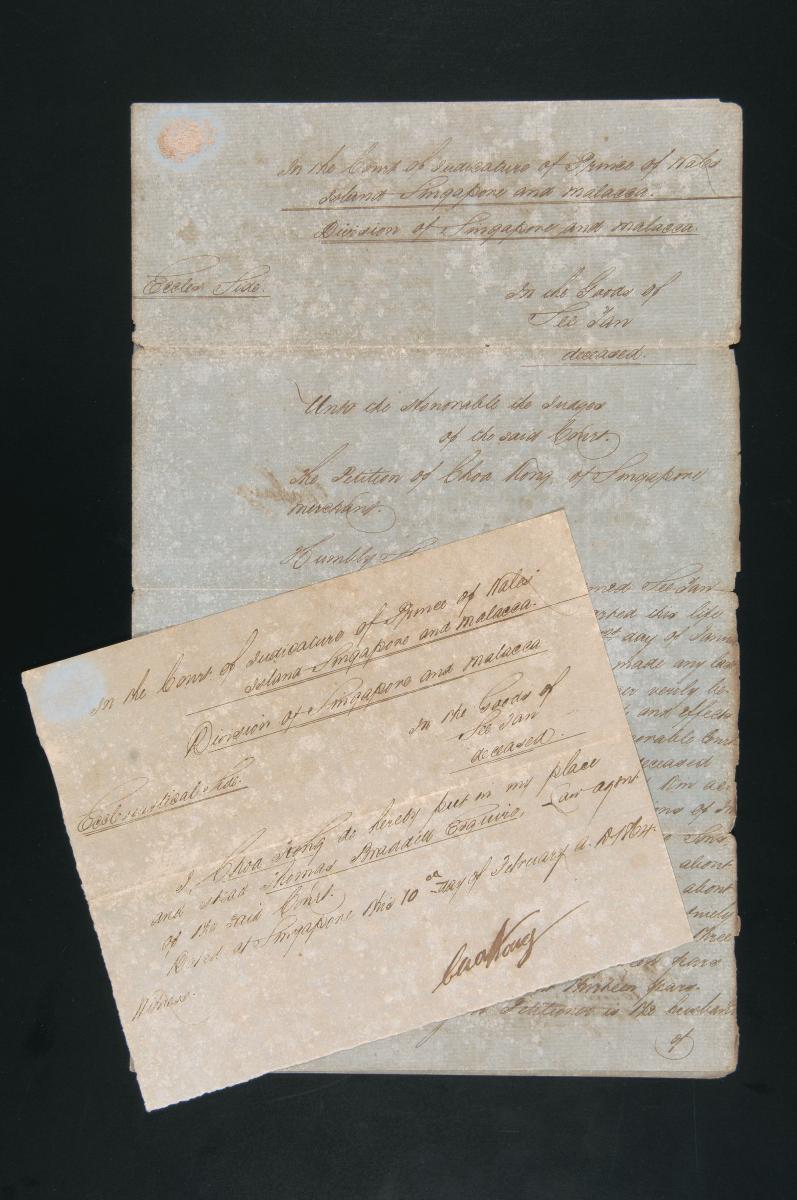 In the Court of Judicature of Prince of Wales
Island Singapore and Malacca.
Division of Singapore and Malacca.
Eccles. Side.
In the Goods of
See Tan
deceased.
Unto the Honorable the Judges
of the said Court.
The Petition of Choa Kong of Singapore
merchant.
Humbly
named See Tan
departed this life
day of
made any
verily be-
and effects
deceased
about
about
three
years
thirteen years.
Petitioner is the husband
of
In the Court of Judicature of Prince of Wales
Island Singapore and Malacca.
Division of Singapore and Malacca
In the Goods of
See Tan
deceased.
Ecclesiastical Side.
I, Choa Kong do hereby put in my place
and stead Thomas Braddell Esquire, Law agent
of the said Court.
Dated at Singapore this 10th day of February A.D. 1864.
Witness.